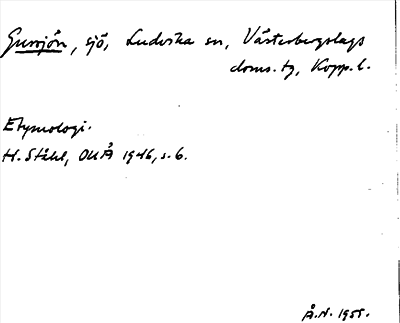 Gussjön, sjö, Ludvika sn, Västerbergslags
doms. tg, Kopp. l.
Etymologi.
H. Ståhl, OUÅ 1946, s. 6.
Å.N. 1955.